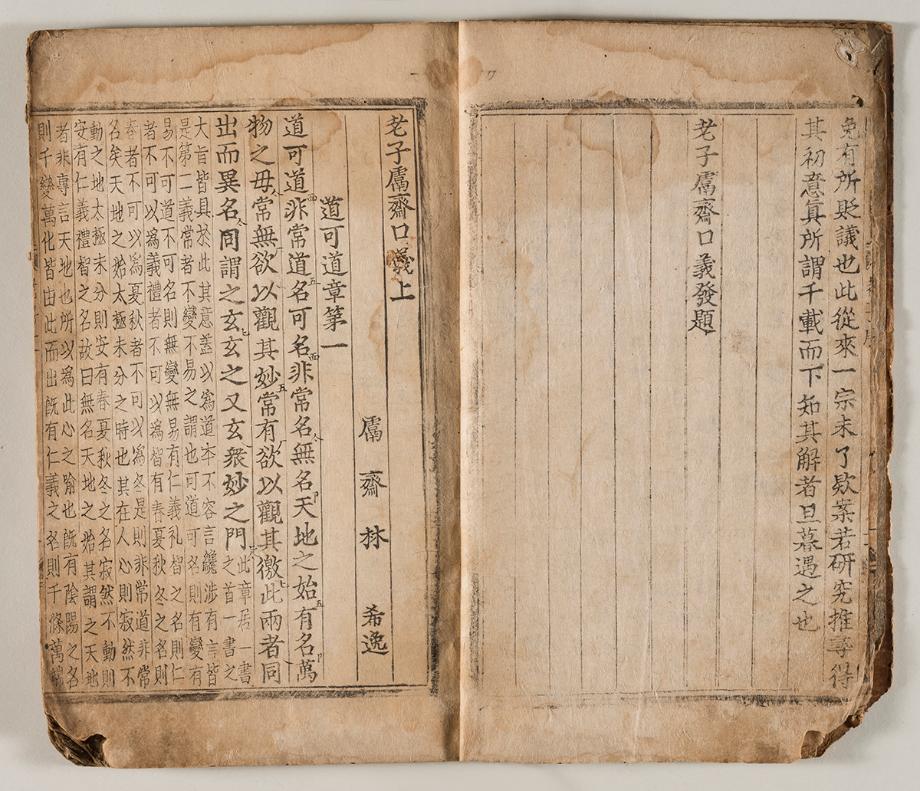 免有所貶議也此從來一宗未了欵案若研究推尋得
其初意眞所謂千載而下知其解者旦暮遇之也
老子鬳齋口義發題
老子鬳齋口義上
鬳齋林 希逸
道可道章第一
道可道非常道名可名非常名無名天地之始有名萬
物之母常無欲以觀其妙常有欲以觀其徼此兩者同
出而異名同謂之玄玄之又玄衆妙之門此章居一書
之首一書之
大旨皆具於此其意蓋以爲道本不容言纔涉有言皆
是第二義常者不變不易之謂也可道可名則有變有
易不可道不可名則無變無易有仁義礼智之名則仁
者不可以爲義禮者不可以爲智有春夏秋冬之名則
春者不可以爲夏秋者不可以爲冬是則非常道非常
名矣天地之始太極未分之時也其在人心則寂然不
動之地太極未分則安有春夏秋冬之名寂然不動則
安有仁義禮智之名故曰無名天地之始其謂之天地
者非專言天地也所以爲此心之喩也旣有陰陽之名
則千變萬化皆由此而出旣有仁義之名則千條萬